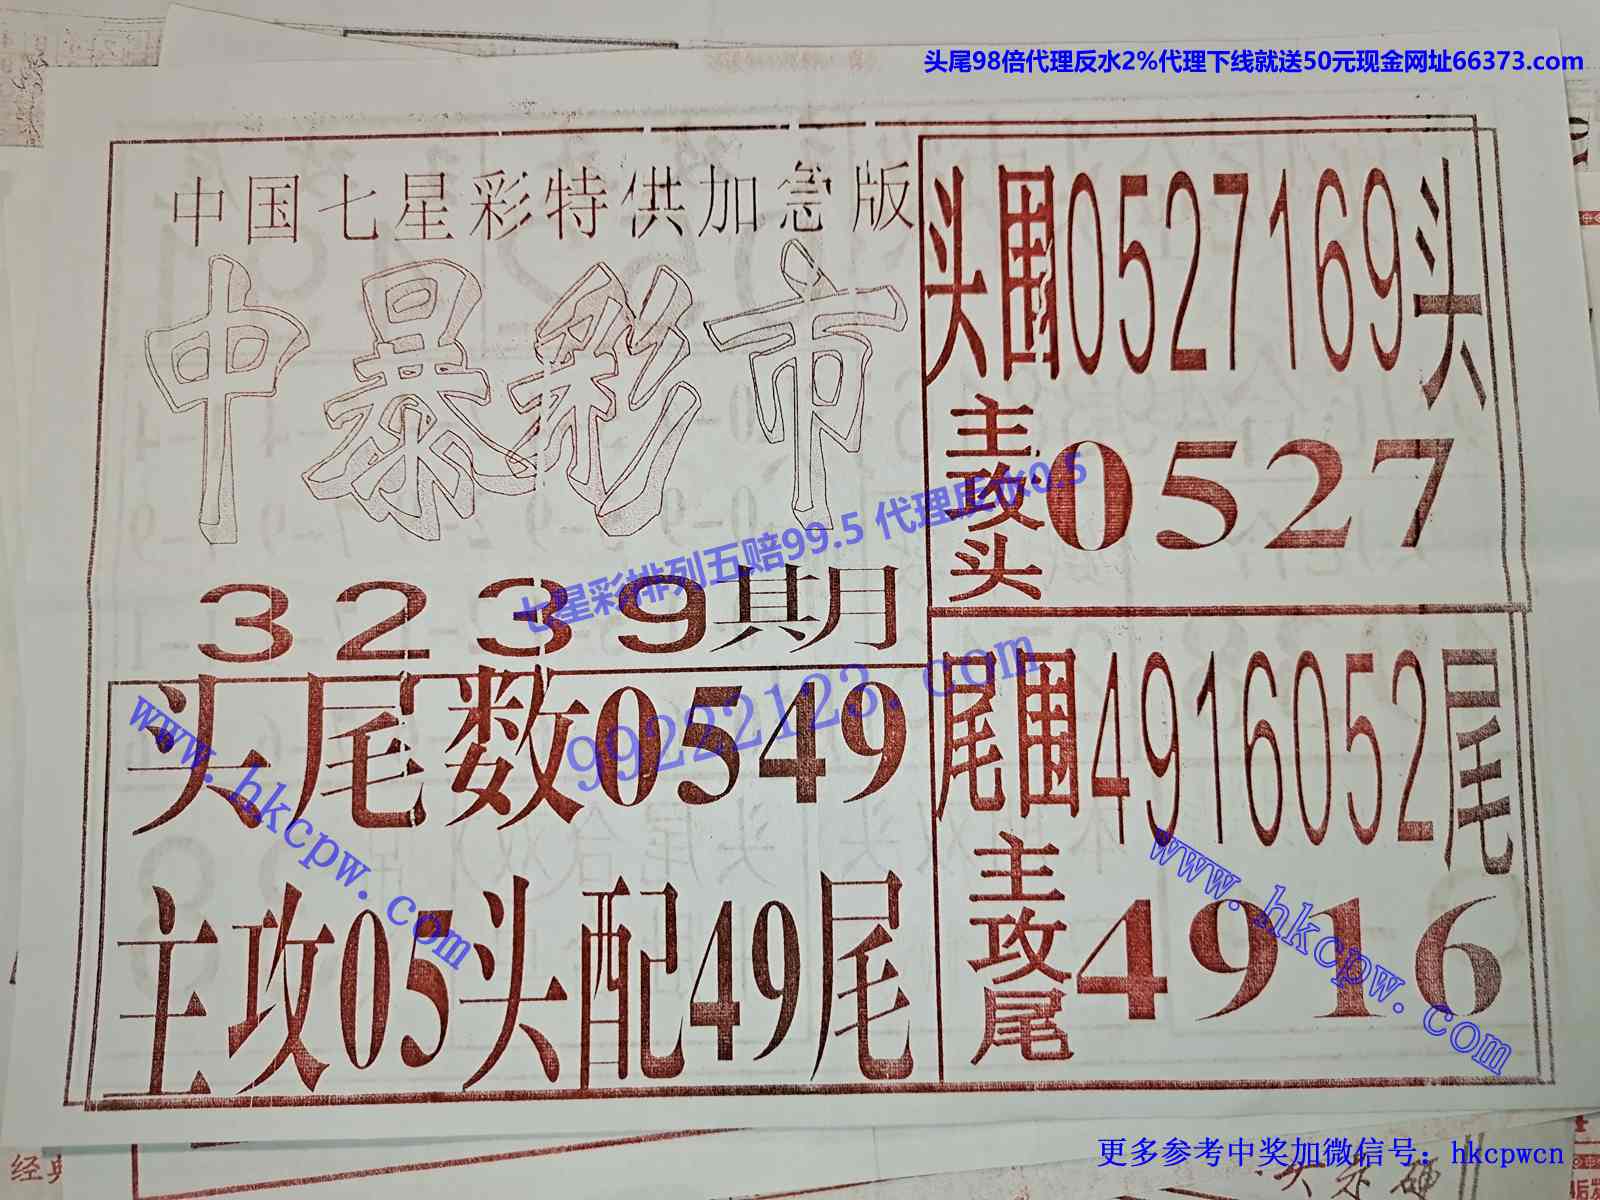 头尾98倍代理反水2%代理下线就送50元现金网址66373.com
中国七星彩特供加急版
中暴彩市
3239期
头尾数0549
主攻05头配49尾
头围0527169头
主攻头0527
尾围4916052尾
主攻尾4916
七星彩排列五赔99.5 代理反水0.5
99222123.com
www.hkcpw.com
www.hkcpw.com
更多参考中奖加微信号：hkcpwcn
经典